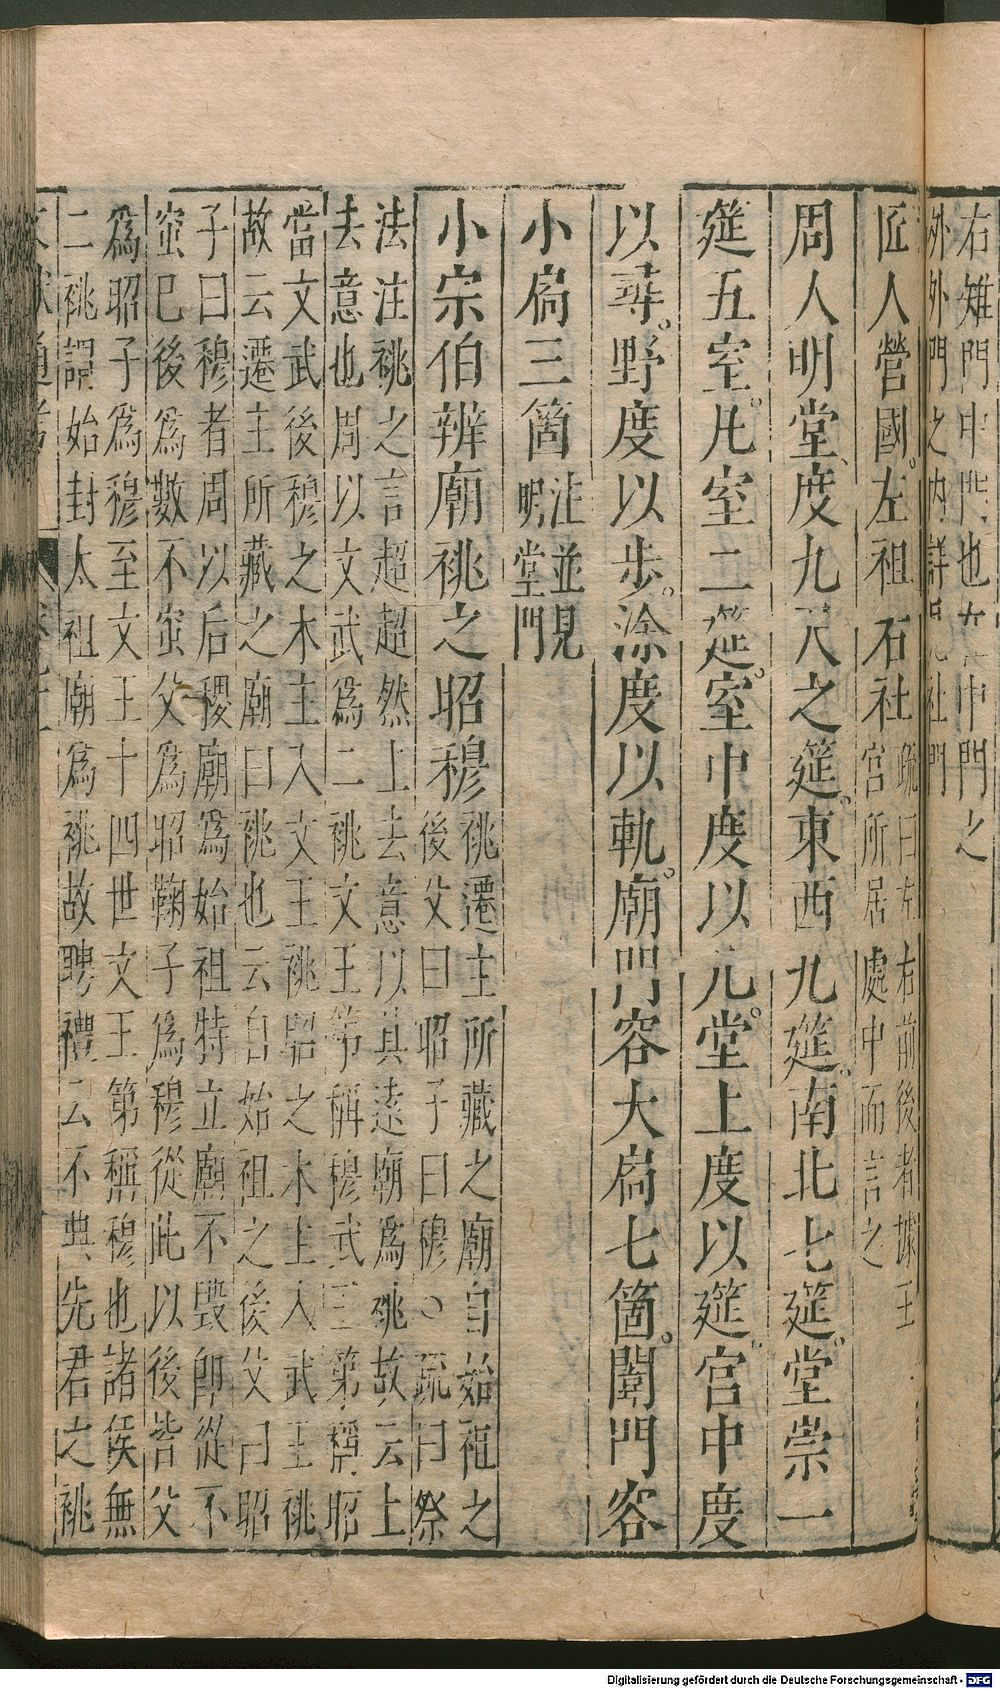 右雉門中門也
外外門之內
匠人營國左祖右社
疏曰左右前後者據王
宮所居處中而言之
周人明堂度九尺之筵東西九筵南北七筵堂崇一
筵五室凡室二筵室中度以几堂上度以筵宮中度
以尋野度以步涂度以軌廟門容大扃七箇闈門容
小扃三箇
注並見
明堂門
小宗伯辨廟祧之昭穆
祧遷主所藏之廟自始祖之
後父曰昭子曰穆○疏曰祭
法注祧之言超超然上去意以其遠廟為祧故云上
去意也周以文武為二祧文王第稱穆武王第稱昭
當文武後穆之木主入文王祧昭之木主入武王祧
故云遷主所藏之廟曰祧也云自始祖之後父曰昭
子曰穆者周以后稷廟為始祖特立廟不毀即從不
窋已後為數不窋父為昭鞠子為穆從此以後皆父
為昭子為穆至文王十四世文王第稱穆也諸侯無
二祧謂始封太祖廟為祧故聘禮云不典先君之祧
文獻通考
Digitalisierung gefördert durch die Deutsche Forschungsgemeinschaft - DFG